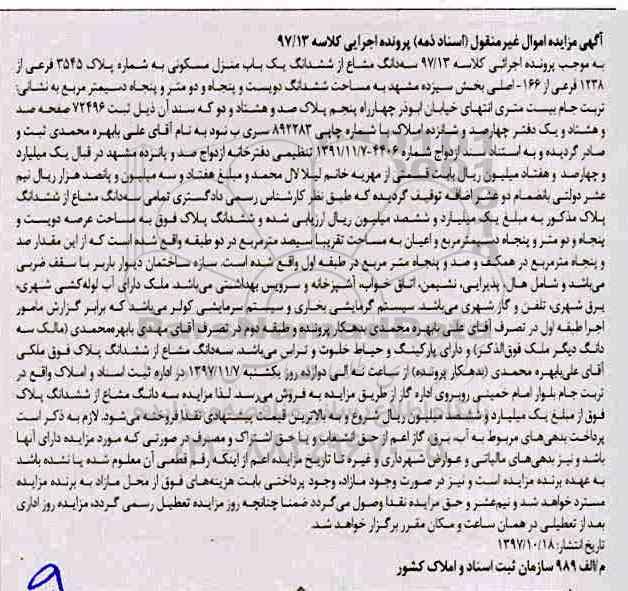 آگهی مزایده اموال غیر منقول (اسناد ذمه) پرونده اجرایی کلاسه ۹۷/۱۳
به موجب پرونده اجرائی کلاسه ۹۷/۱۳ سه‌دانگ مشاع از ششدانگ یک باب منزل مسکونی به شماره پلاک ۳۵۴۵ فرعی از
۱۲۳۸ فرعی از ۱۶۶- اصلی بخش سیزده مشهد به مساحت ششدانگ دویست و پنجاه و دو متر و پنجاه دسیمتر مربع به نشانی:
تربت جام بیست متری انتهای خیابان ابوذر چهارراه پنجم پلاک صد و هشتاد و دو که سند آن ذیل ثبت ۷۲۴۹۶ صفحه صد
و هشتاد و یک دفتر چهارصد و شانزده املاک با شماره چاپی ۸۹۲۲۸۳ سری ب نبود به نام آقای علی بابهره محمدی ثبت و
صادر گردیده و به استناد سند ازدواج شماره ۴۴۰۶-۱۳۹۱/۱۱/۷ تنظیمی دفترخانه ازدواج صد و پانزده مشهد در قبال یک میلیارد
و چهارصد و هفتاد میلیون ریال بابت قسمتی از مهریه خانم لیلا لال محمد و مبلغ هفتاد و سه میلیون و پانصد هزار ریال نیم
عشر دولتی بانضمام دو عشر اضافه توقیف گردیده که طبق نظر کارشناس رسمی دادگستری تمامی سه‌دانگ مشاع از ششدانگ
پلاک مذکور به مبلغ یک میلیارد و ششصد میلیون ریال ارزیابی شده و ششدانگ پلاک فوق به مساحت عرصه دویست و
پنجاه و دو متر و پنجاه دسیمترمربع و اعیان به مساحت تقریبا سیصد مترمربع در دو طبقه واقع شده است که از این مقدار صد
و پنجاه مترمربع در همکف و صد و پنجاه متر مربع در طبقه اول واقع شده است. سازه ساختمان دیوار باربر با سقف ضربی
می‌باشد و شامل هال، پذیرایی، نشیمن، اتاق خواب، آشپزخانه و سرویس بهداشتی می‌باشد. ملک دارای آب لوله‌کشی شهری،
برق شهری، تلفن و گاز شهری می‌باشد. سیستم گرمایشی بخاری و سیستم سرمایشی کولر می‌باشد که برابر گزارش مامور
اجرا طبقه اول در تصرف آقای علی بابهره محمدی بدهکار پرونده و طبقه دوم در تصرف آقای مهدی بابهره‌محمدی (مالک سه
دانگ دیگر ملک فوق‌الذکر) و دارای پارکینگ و حیاط خلوت و تراس می‌باشد. سه‌دانگ مشاع از ششدانگ پلاک فوق ملکی
آقای علی‌بابهره محمدی (بدهکار پرونده) از ساعت نه الی دوازده روز یکشنبه ۱۳۹۷/۱۱/۷ در اداره ثبت اسناد و املاک واقع در
تربت جام بلوار امام خمینی روبروی اداره گاز از طریق مزایده به فروش می‌رسد. لذا مزایده سه دانگ مشاع از ششدانگ پلاک
فوق از مبلغ یک میلیارد و ششصد میلیون ریال شروع و به بالاترین قیمت پیشنهادی نقدا فروخته می‌شود. لازم به ذکر است
پرداخت بدهی‌های مربوط به آب، برق، گاز اعم از حق انشعاب و یا حق اشتراک و مصرف در صورتی که مورد مزایده دارای آنها
باشد و نیز بدهی‌های مالیاتی و عوارض شهرداری و غیره تا تاریخ مزایده اعم از اینکه رقم قطعی آن معلوم شده یا نشده باشد
به عهده برنده مزایده است و نیز در صورت وجود مازاد، وجود پرداختی بابت هزینه‌های فوق از محل مازاد به برنده مزایده
مسترد خواهد شد و نیم‌عشر و حق مزایده نقدا وصول می‌گردد ضمنا چنانچه روز مزایده تعطیل رسمی گردد، مزایده روز اداری
بعد از تعطیلی در همان ساعت و مکان مقرر برگزار خواهد شد.
تاریخ انتشار: ۱۳۹۷/۱۰/۱۸
م/الف ۹۸۹ سازمان ثبت اسناد و املاک کشور
۹